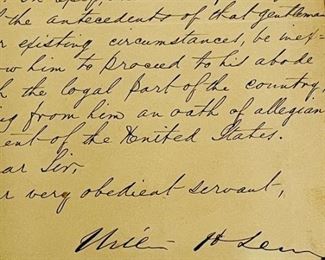 the antecedents of that gentleman
r existing circumstances, be inex-
ow him to proceed to his abode
h the loyal part of the country,
ng from him an oath of allegian
ent of the United States.
ar Sir,
r very obedient servant,